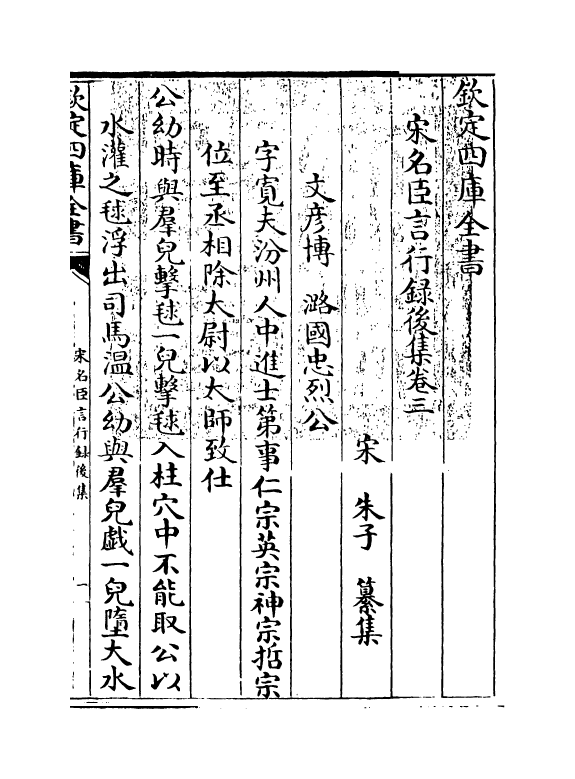 欽定四庫全書
宋名臣言行録後集卷三
宋 朱子 纂集
文彦博 潞國忠烈公
字寛夫汾州人中進士第事仁宗英宗神宗哲宗
位至丞相除太尉以太師致仕
公幼時與羣兒擊毬一兒擊毬入柱穴中不能取公以
水灌之毬浮出司馬温公幼與羣兒戲一兒墮大水
欽定四庫全書
宋名臣言行録後集
一